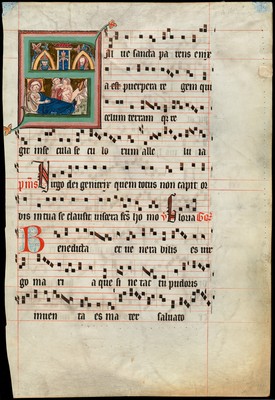 al ue sancta pa rens enix
a est puerpera re gem qui
celum terram q; re
git in se cula se cu lo rum alle lu ia
Virgo dei genitrix quem totus non capit or
bis in tua se clausit uiscera fcs ho mo Gloria
Benedicta et ue nera bilis es uir
go ma ri a que si ne tac tu pudoris
inuen ta es ma ter saluato